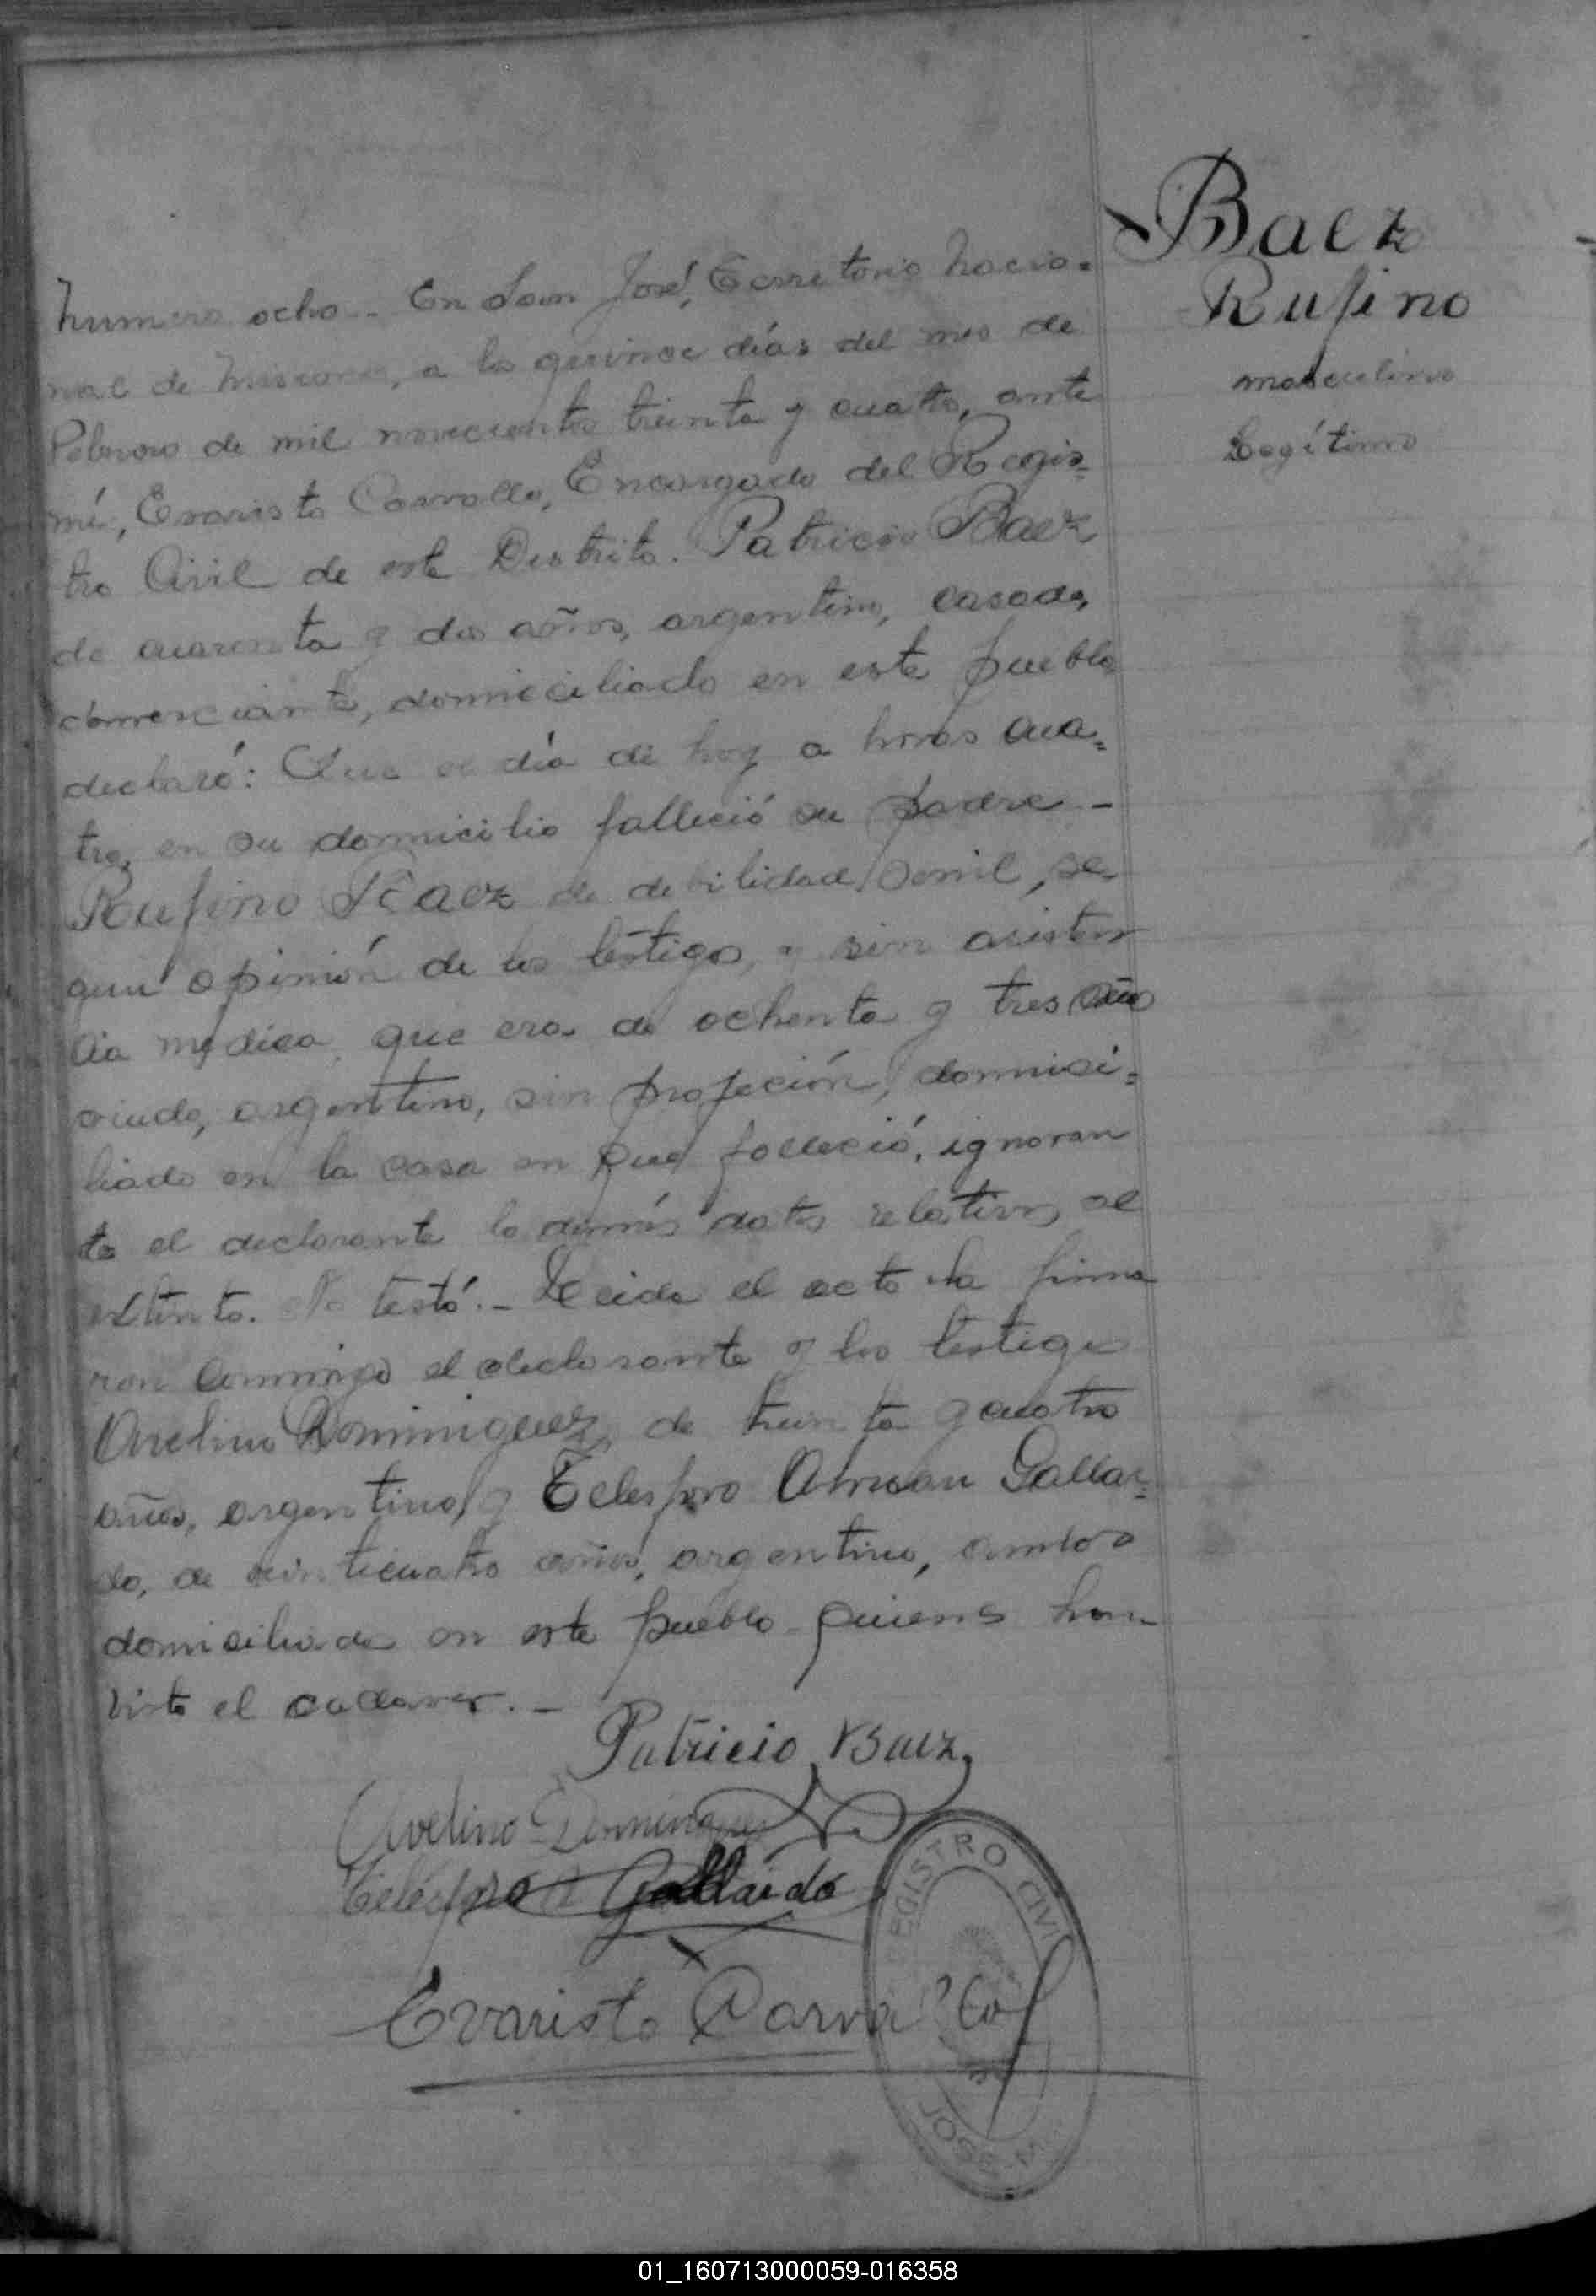 Baez
Rufino
masculino
Legítimo
Numero ocho.- En San José, Territorio Nacio-
nal de Misiones, a los quince días del mes de
Febrero de mil novecientos treinta y cuatro, ante
mí, Evaristo Carvallo, Encargado del Regis-
tro Civil de este Distrito. Patricio Baez
de cuarenta y dos años, argentino, casado,
comerciante, domiciliado en este pueblo,
declaró: Que el día de hoy a horas cua-
tro, en su domicilio falleció su padre -
Rufino Baez de debilidad senil, se-
gun opinión de los testigos, y sin asisten
cia medica, que era de ochenta y tres años
viudo, argentino, sin profeción, domici-
liado en la casa en que falleció, ignoran
te el declarante lo demás datos relativos al
extinto. No testó.- Leida el acta la firma
ron conmigo el declarante y los testigos
Avelino Dominiguez, de treinta y cuatro
años, argentino, y Telesforo Gallar-
do, de veinticuatro años, argentino, ambos
domiciliados en este pueblo quienes han
visto el cadaver.-
Patricio Baez
Avelino Dominguez
Telésforo A Gallardo
Evaristo Carvallo
REGISTRO CIVIL
JOSE M.
01_160713000059-016358